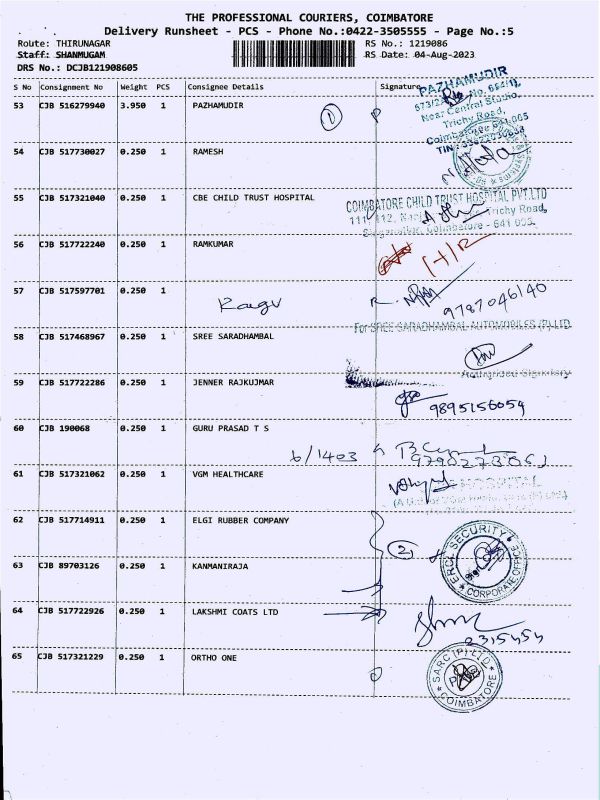 THE PROFESSIONAL COURIERS, COIMBATORE
Delivery Runsheet - PCS - Phone No.:0422-3505555 - Page No.:5
Route: THIRUNAGAR RS No.: 1219086
Staff: SHANMUGAM RS Date: 04-Aug-2023
DRS No.: DCJB121908605
S No Consignment No Weight PCS Consignee Details Signature
53 CJB 516279940 3.950 1 PAZHAMUDIR
PAZHAMUDIR
Near Central Studio,
Trichy Road,
1
54 CJB 517730027 0.250 1 RAMESH
55 CJB 517321040 0.250 1 CBE CHILD TRUST HOSPITAL
COIMBATORE CHILD TRUST HOSPITAL PVT.LTD
Trichy Road,
Coimbatore - 641 005.
56 CJB 517722240 0.250 1 RAMKUMAR
57 CJB 517597701 0.250 1
Ragu
9787046140
For SREE SARADHAMBAL AUTOMOBILES (P) LTD
58 CJB 517468967 0.250 1 SREE SARADHAMBAL
Authorised Signatory
59 CJB 517722286 0.250 1 JENNER RAJKUJMAR
9895156054
60 CJB 190068 0.250 1 GURU PRASAD T S
b/1403
61 CJB 517321062 0.250 1 VGM HEALTHCARE
HOSPITAL
62 CJB 517714911 0.250 1 ELGI RUBBER COMPANY
2
ERCL SECURITY
CORPORATE OFFICE
63 CJB 89703126 0.250 1 KANMANIRAJA
64 CJB 517722926 0.250 1 LAKSHMI COATS LTD
2315454
65 CJB 517321229 0.250 1 ORTHO ONE
SARC (P) LTD
COIMBATORE